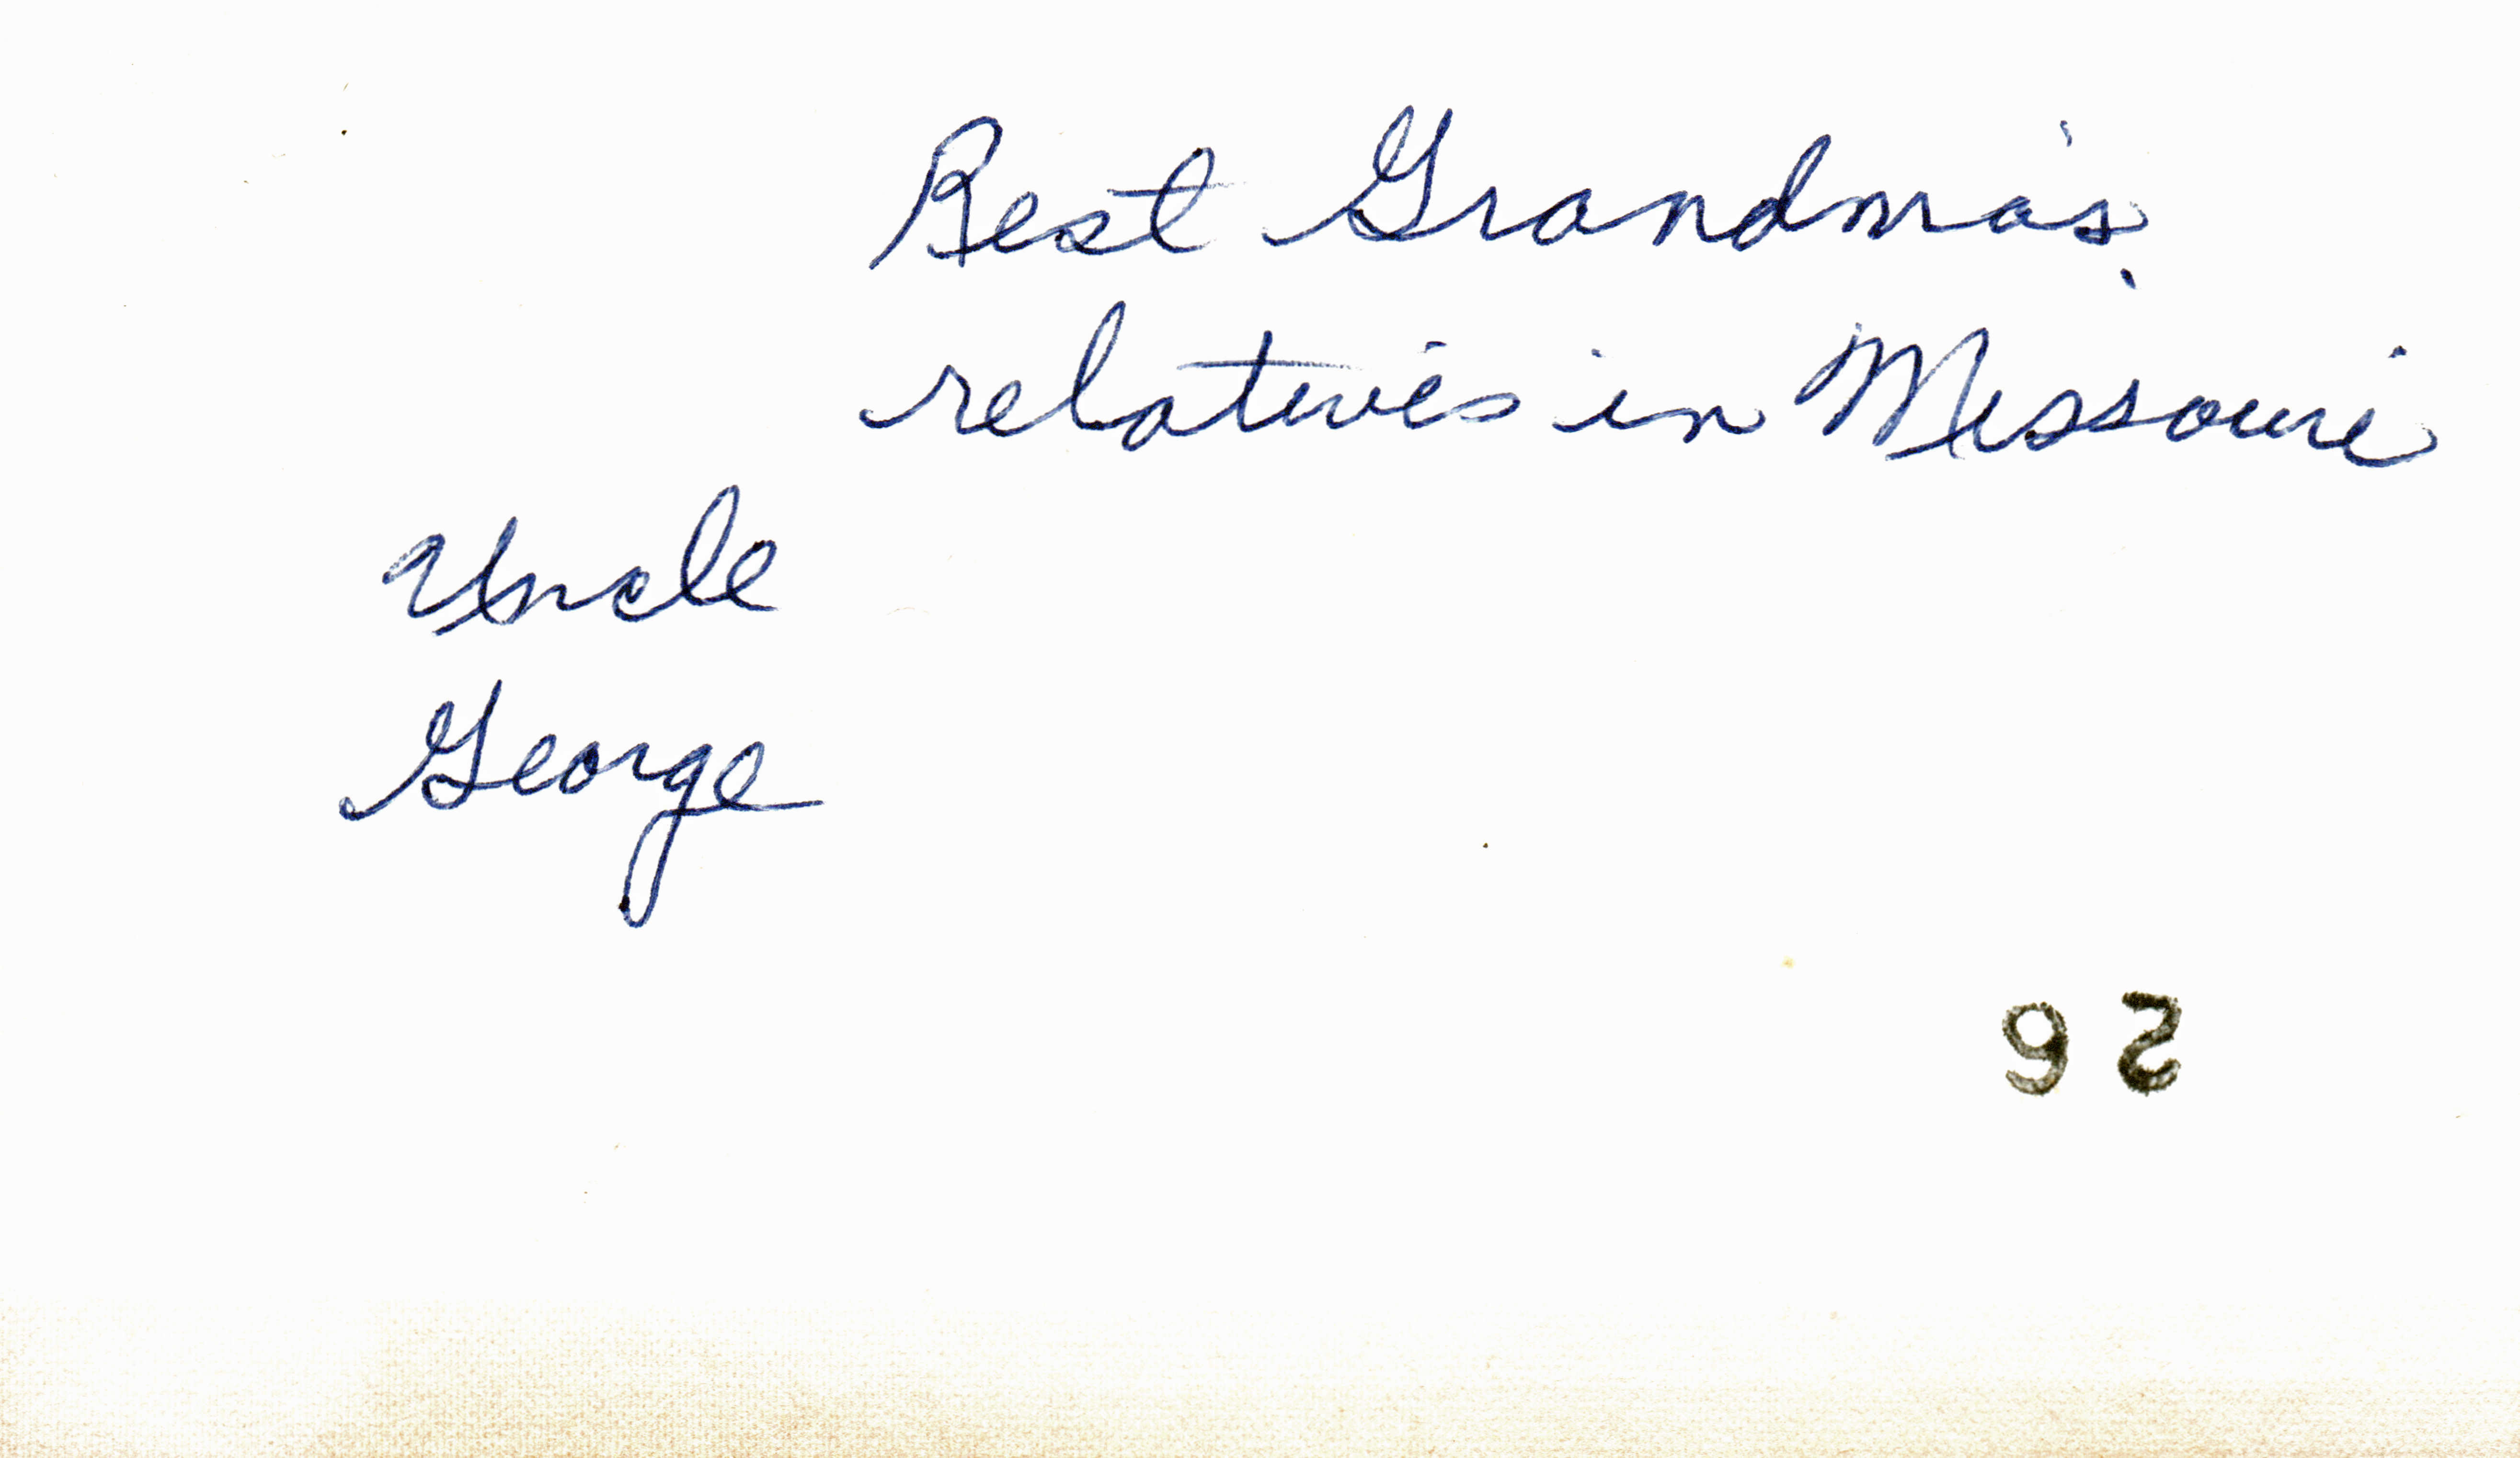 Best Grandma's
relatives in Missouri
Uncle
George
26